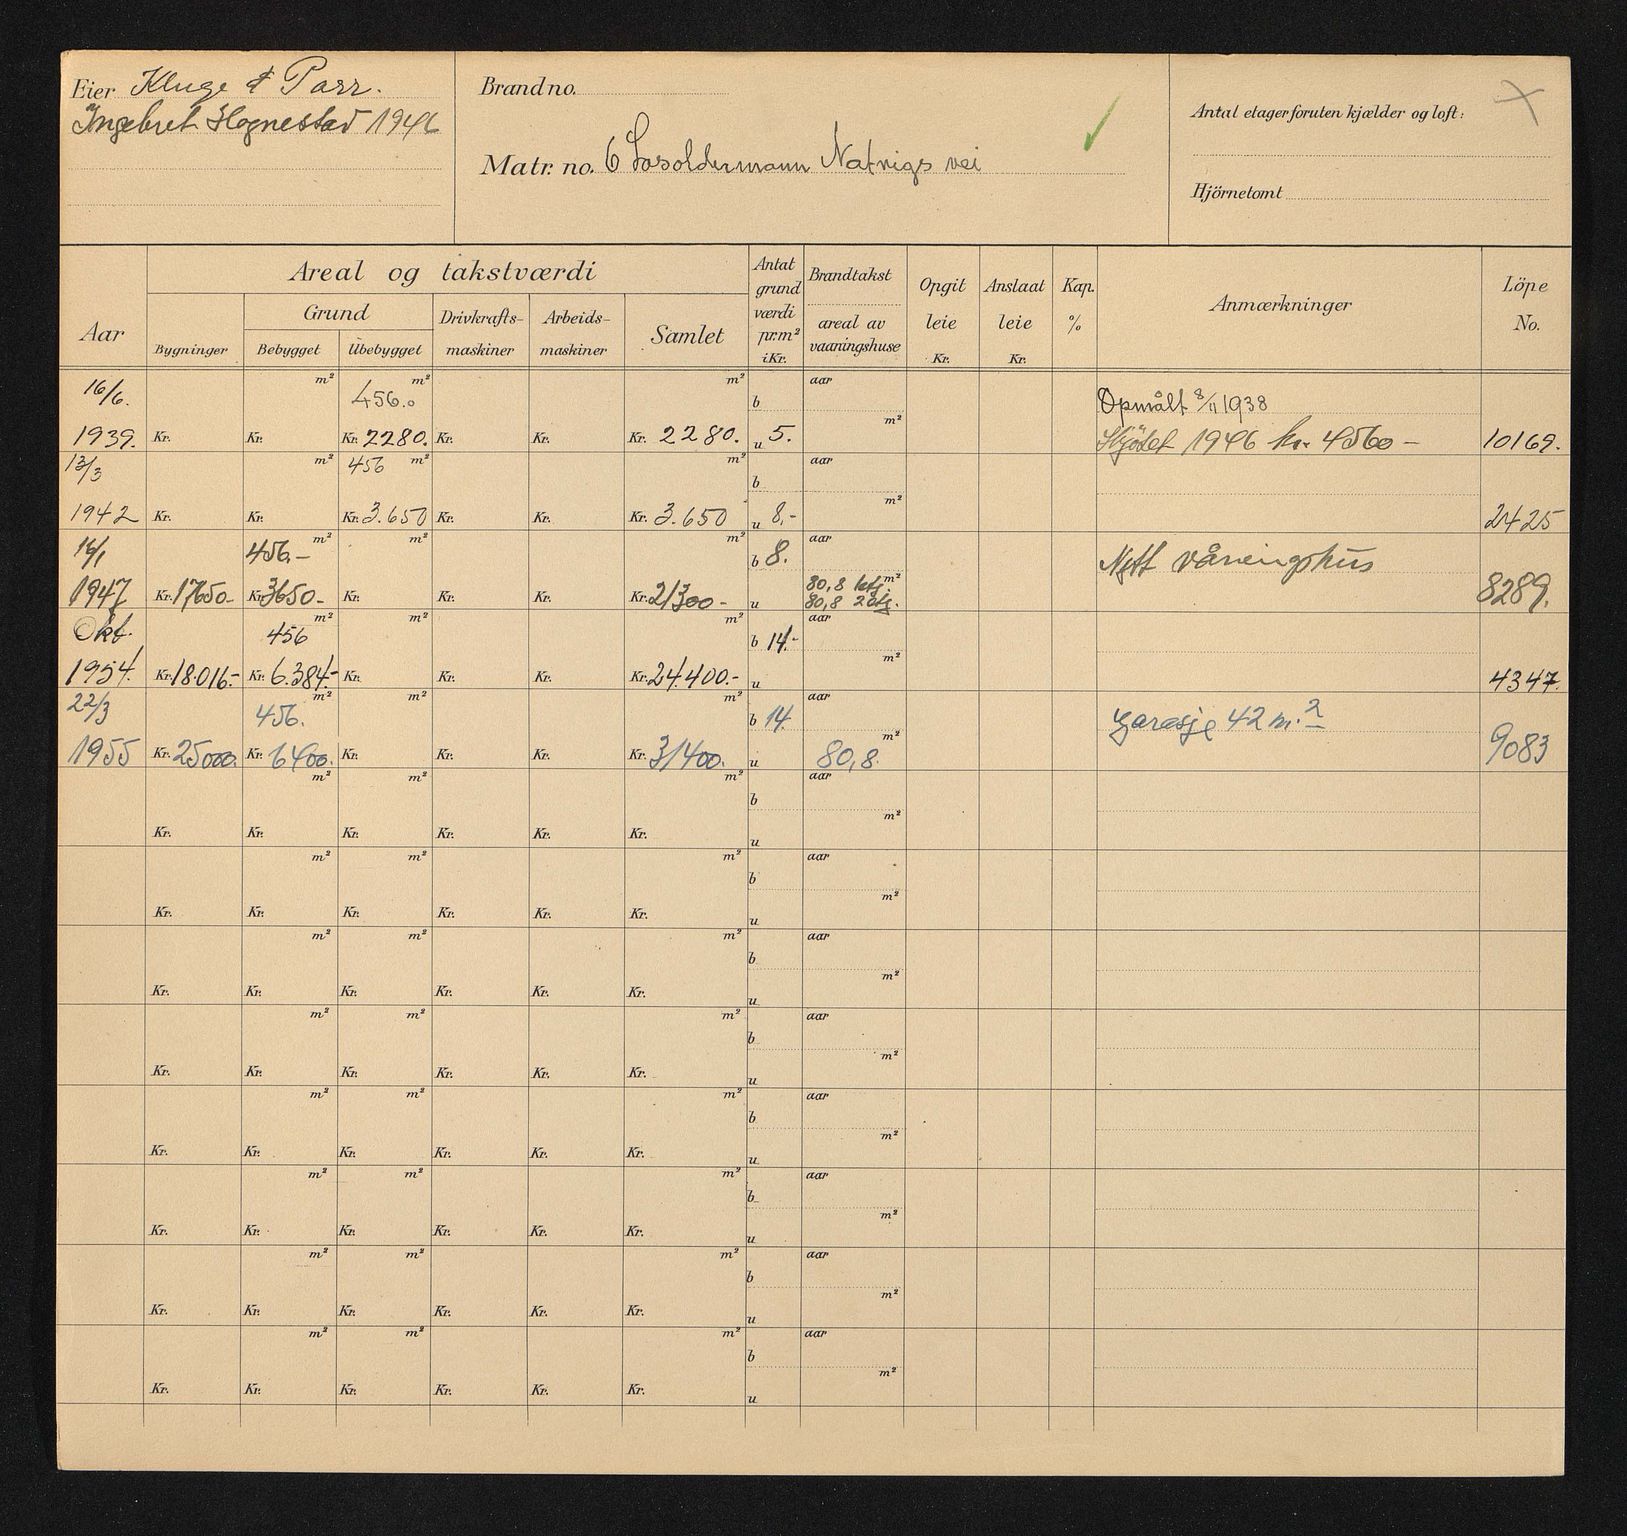 Eier Kluge & Parr.
Ingebret Hognestad 1946
Brand no.
Matr. no. 6 Losoldermann Natvigs vei
Antal etager foruten kjælder og loft:
Hjörnetomt
Aar
Areal og takstværdi
Bygninger
Grund
Bebygget Ubebygget
Drivkrafts-
maskiner
Arbeids-
maskiner
Samlet
Antat
grund
værdi
pr. m²
i Kr.
Brandtakst
areal av
vaaningshuse
Opgit
leie
Kr.
Anslaat
leie
Kr.
Kap.
%
Anmærkninger
Löpe
No.
16/6. m² 456.0 m² m² b aar Opmålt 8/11 1938
1939. Kr. Kr. Kr. 2280. Kr. Kr. Kr. 2280. u 5. m² Skjötet 1946 kr. 4560 – 10169.
13/3 m² 456 m² m² b aar
1942 Kr. Kr. Kr. 3.650 Kr. Kr. Kr. 3.650 u 8,- m² 2425
16/1 456.– m² m² m² b 8. aar Nytt våningshus
1947 Kr. 17650- Kr. 3650- Kr. Kr. Kr. Kr. 21300- u 80,8 ktg m² 8289.
80,8 2 etg.
Okt. 456 m² m² m² b 14.- aar
1954. Kr. 18.016.- Kr. 6.384.- Kr. Kr. Kr. Kr. 24.400.- u m² 4347.
22/3 456. m² m² m² b 14. aar garasje 42 m.²
1955 Kr. 25000. Kr. 6400. Kr. Kr. Kr. Kr. 31400. u 80,8. m² 9083
m² m² m² b aar
Kr. Kr. Kr. Kr. Kr. Kr. u m²
m² m² m² b aar
Kr. Kr. Kr. Kr. Kr. Kr. u m²
m² m² m² b aar
Kr. Kr. Kr. Kr. Kr. Kr. u m²
m² m² m² b aar
Kr. Kr. Kr. Kr. Kr. Kr. u m²
m² m² m² b aar
Kr. Kr. Kr. Kr. Kr. Kr. u m²
m² m² m² b aar
Kr. Kr. Kr. Kr. Kr. Kr. u m²
m² m² m² b aar
Kr. Kr. Kr. Kr. Kr. Kr. u m²
m² m² m² b aar
Kr. Kr. Kr. Kr. Kr. Kr. u m²